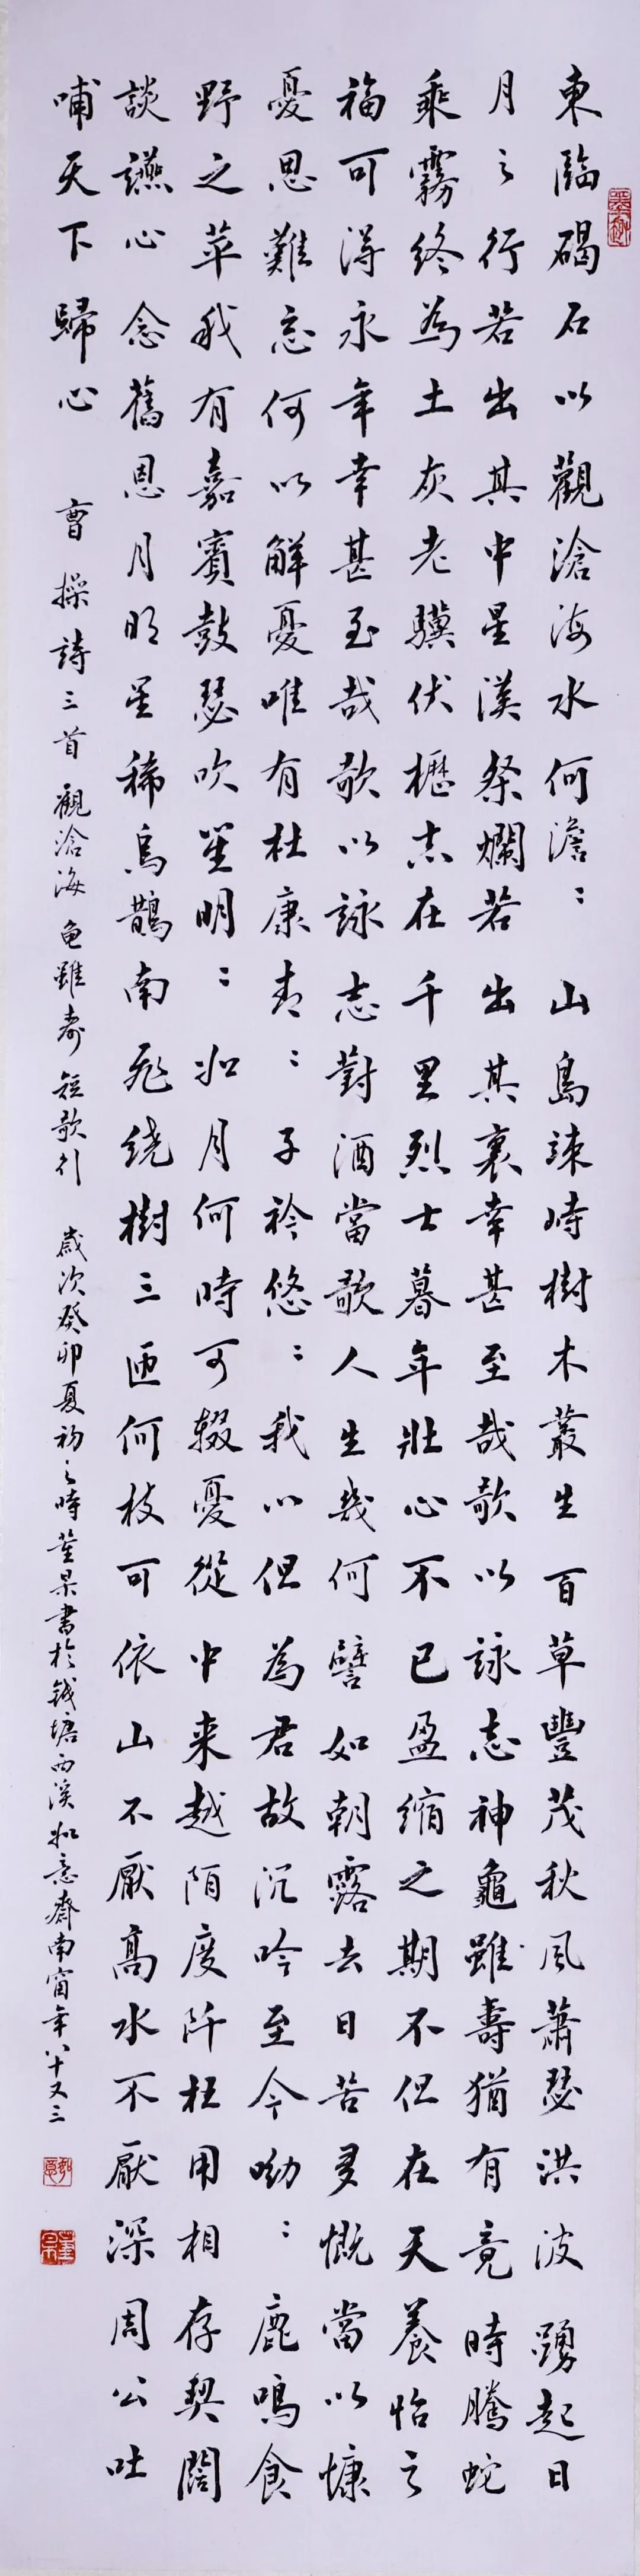 東臨碣石以觀滄海水何澹〻山島竦峙樹木叢生百草豐茂秋風蕭瑟洪波踴起日
月之行若出其中星漢粲爛若出其裏幸甚至哉歌以詠志神龜雖壽猶有竟時騰蛇
乘霧終為土灰老驥伏櫪志在千里烈士暮年壯心不已盈縮之期不但在天養怡之
福可得永年幸甚至哉歌以詠志對酒當歌人生幾何譬如朝露去日苦多慨當以慷
憂思難忘何以解憂唯有杜康青〻子衿悠〻我心但為君故沉吟至今呦〻鹿鳴食
野之苹我有嘉賓鼓瑟吹笙明〻如月何時可輟憂從中来越陌度阡枉用相存契闊
談讌心念舊恩月明星稀烏鵲南飛绕樹三匝何枝可依山不厭高水不厭深周公吐
哺天下歸心 曹操詩三首 觀滄海 龟雖壽 短歌行 歲次癸卯夏初之時董杲書於钱塘西溪如意齋南窗年八十又三
如意
董杲